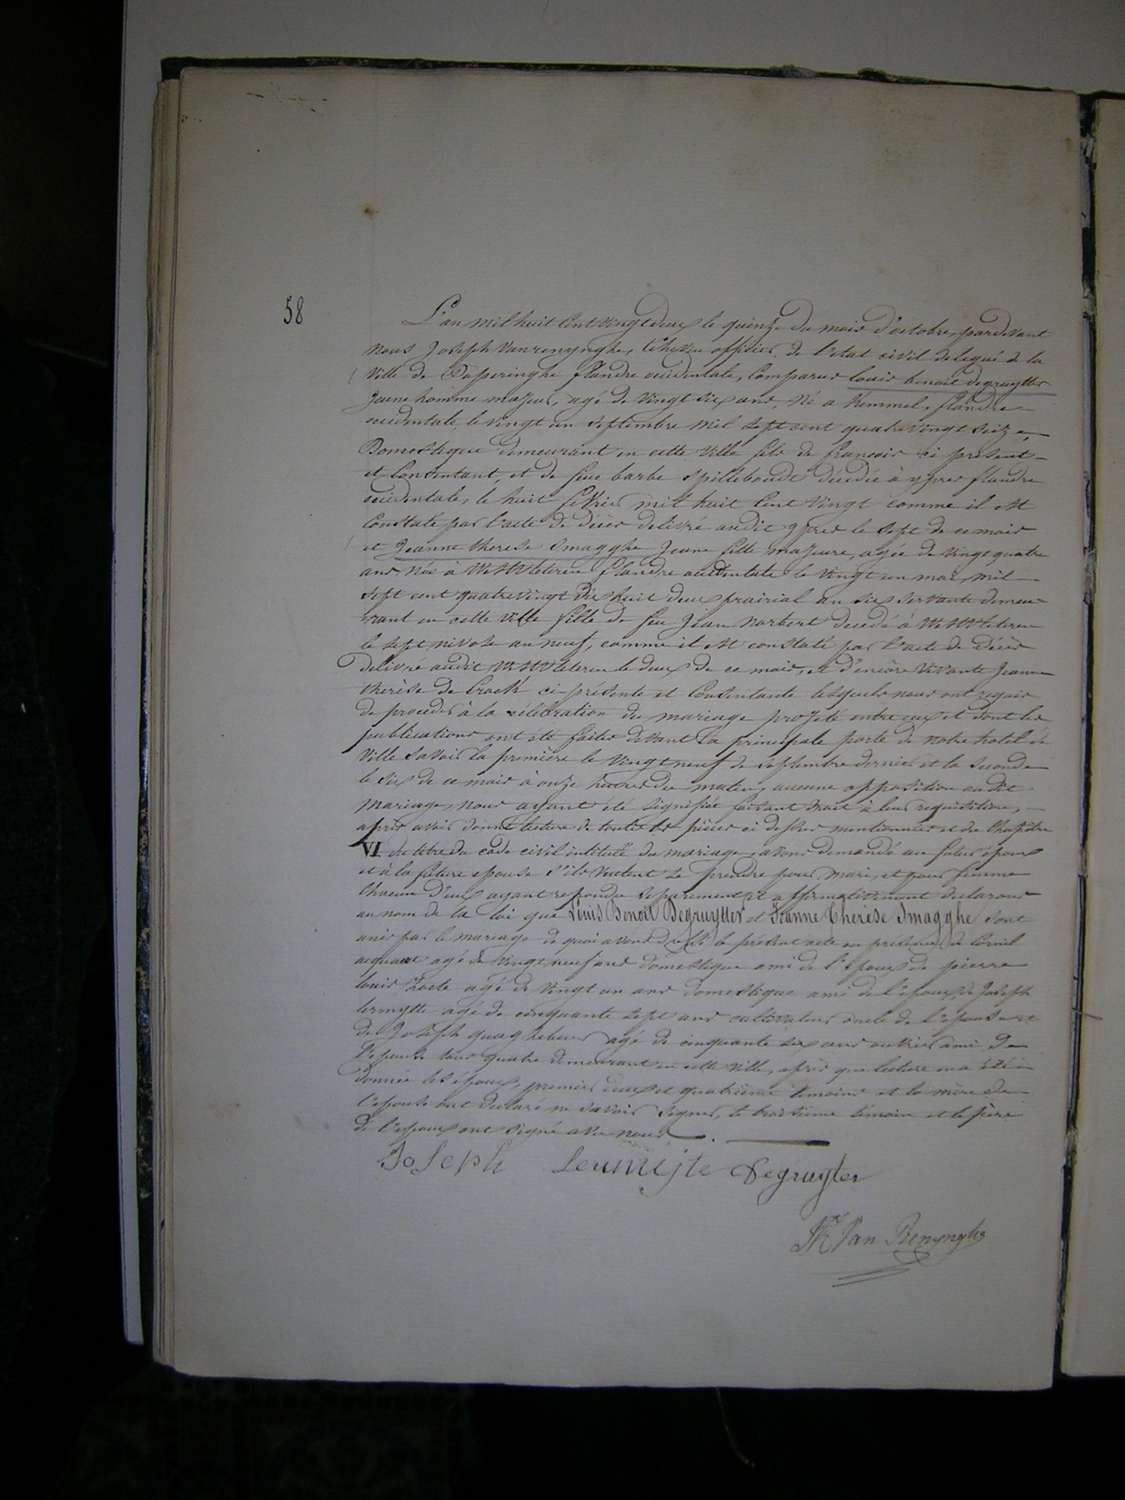 58
L'an mil huit cent vingt deux le quinze du mois d'octobre, pardevant
nous Joseph Vanrenynghe, échevin officier de l'état civil delegué de la
Ville de Poperinghe flandre occidentale, Comparus Louis benoit degruytter
Jeune homme majeur, agé de vingt six ans, né a Kemmel, flandre
occidentale le vingt un septembre mil sept cent quatre vingt seize,
Domestique demeurant en cette ville fils de francois ci présent
et Consentant, et de feue barbe Spilleboudt decedée à ypres flandre
occidentale, le huit fevrier mil huit Cent Vingt comme il est
Constaté par l'acte de décès delivré audit ypres le sept de ce mois
et Jeanne therese Smagghe Jeune fille majeure, agée de vingt quatre
ans, née à Westvleteren flandre occidentale le vingt un mai, mil
sept cent quatrevingt dix huit deux prairial an six servante demeu-
rant en cette ville fille de feu Jean norbert decedé à Westvleteren
le sept nivose an neuf, comme il est constaté par l'acte de décès
delivré audit Westvleteren le deux de ce mois, et d'encore vivante Jeanne
therèse de Crock ci présente et Consentante lesquels nous ont requis
de proceder à la célébration du mariage projeté entre eux et dont les
publications ont été faites devant la principale porte de notre hotel de
ville savoir la première le vingtneuf de septembre dernier et la seconde
le six de ce mois à onze heures du matin, aucune opposition audit
mariage, nous ayant été signifié faisant droit à leur requisition,
après avoir donné lecture de toutes les pièces ci dessus mentionnées et du Chapitre
VI du titre du code civil intitulé du mariage, avons demandé au futur époux
et à la future epouse s'ils veulent se prendre pour mari, et pour femme
Chacun d'eux ayant repondu séparement et affirmativement declarons
au nom de la loi que Louis Benoit Degruytter et Jeanne Therese Smagghe sont
unis par le mariage de quoi avons dressé le présent acte en présence de
agé de vingt neuf ans domestique ami de l'epoux de pierre
louis agé de vingt un ans domestique ami de l'epoux, de Joseph
lermytte agé de cinquante sept ans cultivateur oncle de l'epouse et
de Joseph quaghebeur agé de cinquante six ans ouvrier ami de
l'epouse tous quatre demeurant en cette ville, après que lecture en a été
donnée les époux, premier deux et quatrième temoins et la mère de
l'epouse ont declaré ne savoir signer, le troisième témoin et le père
de l'epoux ont signé avec nous.
Joseph Lermijte Degruyter
Van Renynghe